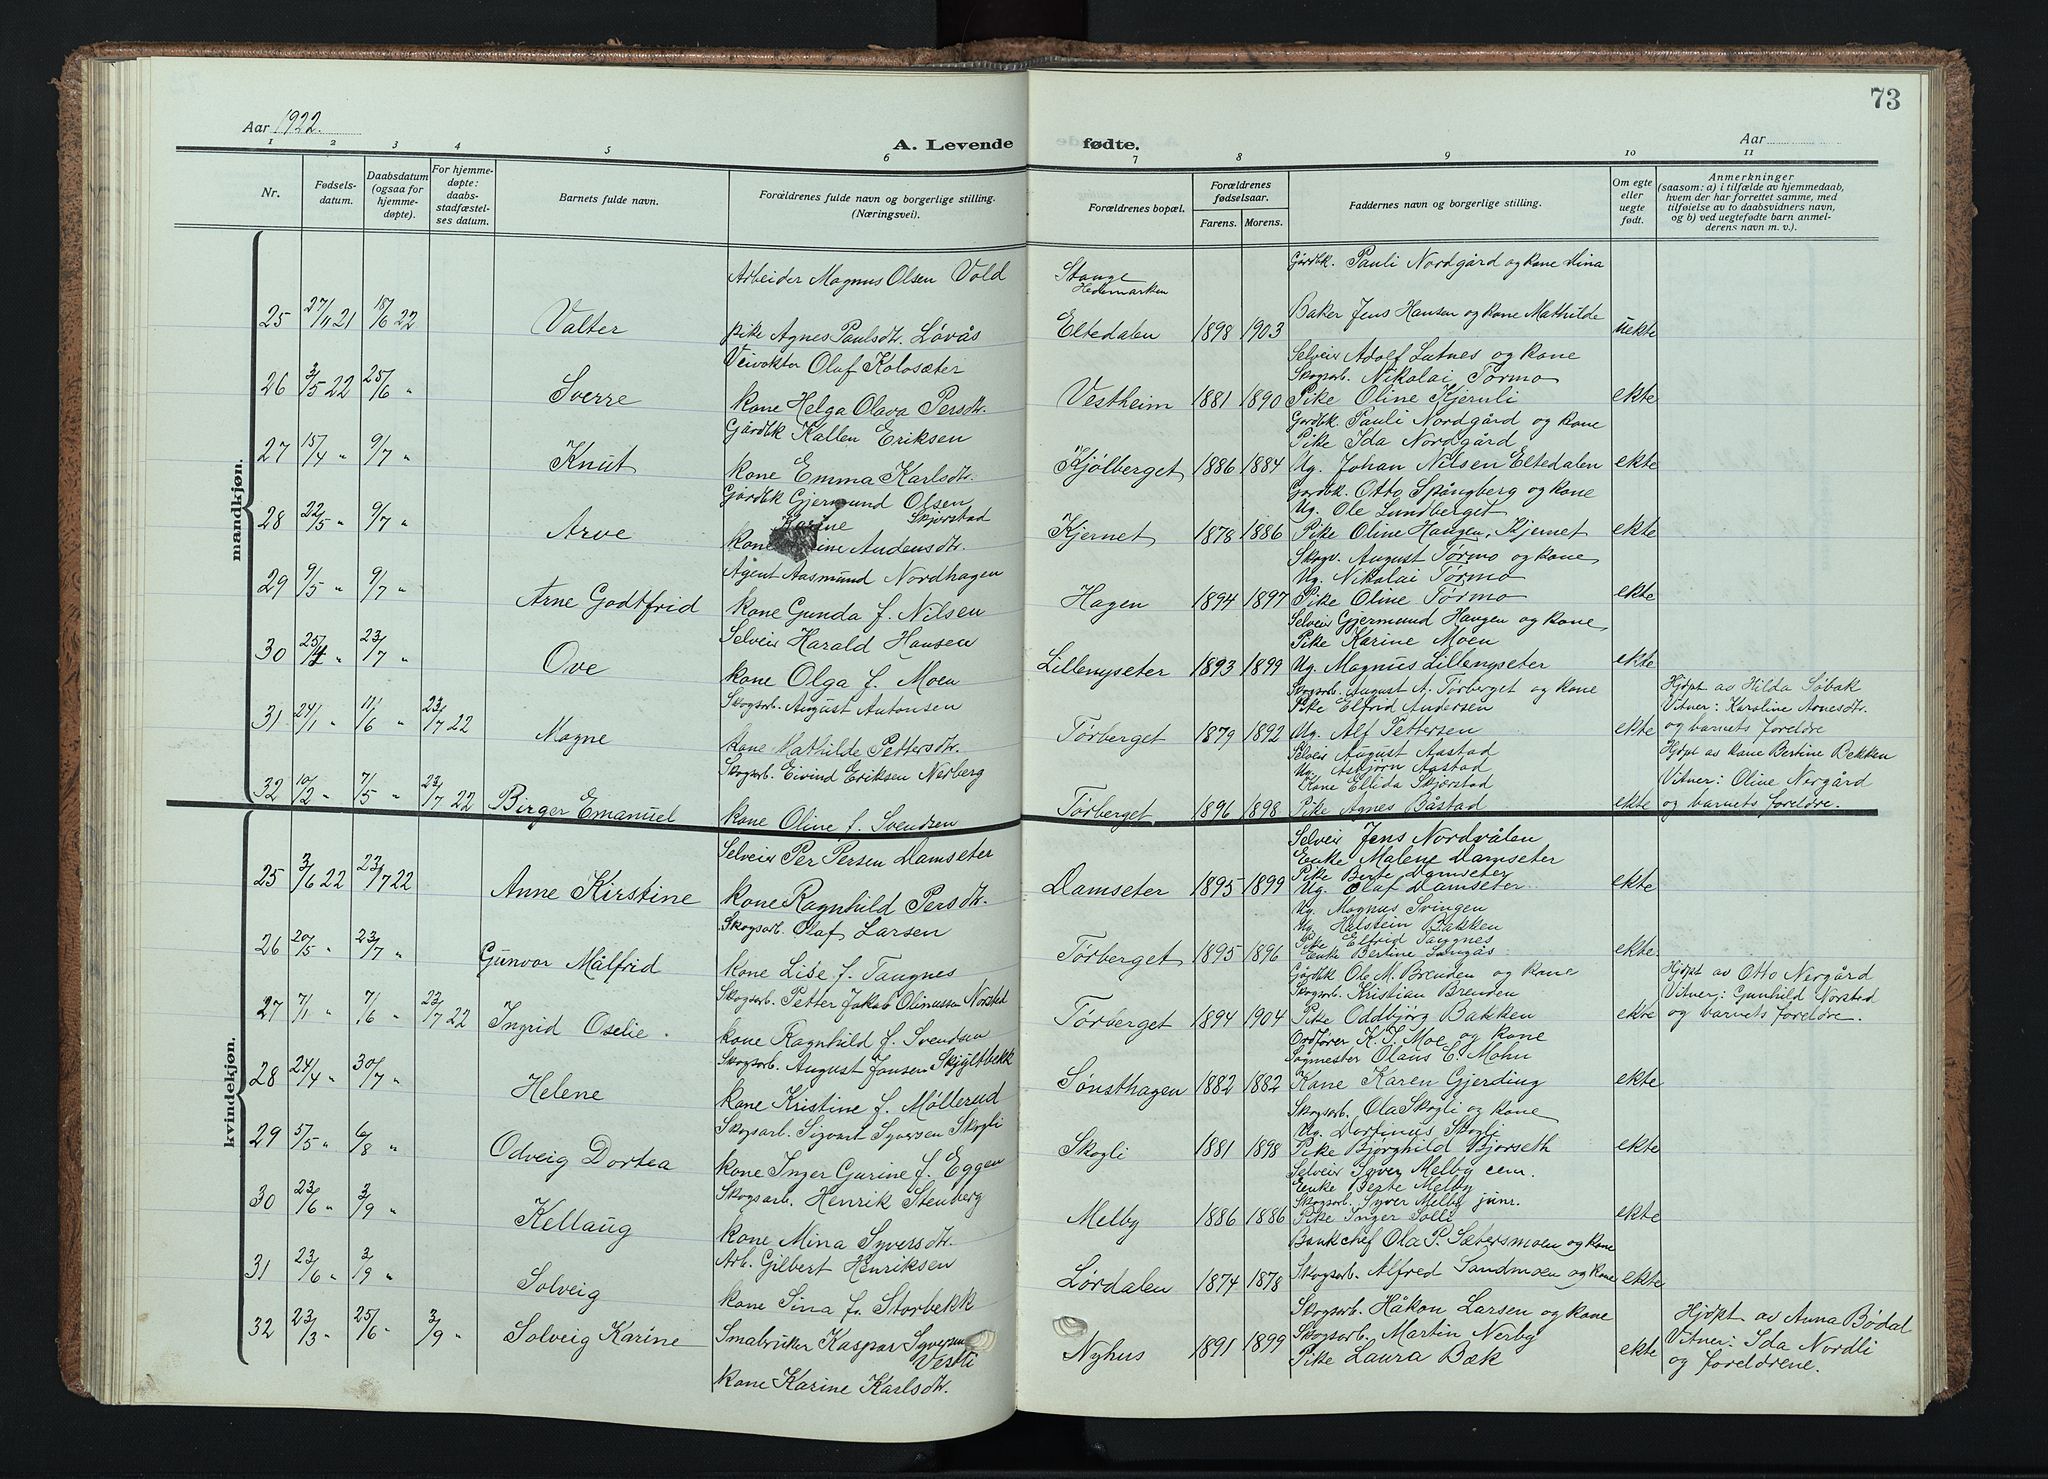 73
Aar 1922.
A. Levende fødte.
Aar
1 2 3 4 5 6 7 8 9 10 11
Nr.
Fødsels-
datum.
Daabsdatum
(ogsaa for
hjemme-
døpte).
For hjemme-
døpte:
daabs-
stadfæstel-
ses datum.
Barnets fulde navn.
Forældrenes fulde navn og borgerlige stilling.
(Næringsvei).
Forældrenes bopæl.
Forældrenes
fødselsaar.
Farens. Morens.
Faddernes navn og borgerlige stilling.
Om egte
eller
uegte
født.
Anmerkninger
(saasom: a) i tilfælde av hjemmedaab,
hvem der har forrettet samme, med
tilføielse av to daabsvidners navn,
og b) ved uegtefødte barn anmel-
derens navn m. v.).
mandkjøn.
Arbeider Magnus Olsen Vold Stange Gårdbk. Pauli Nordgård og kone Mina
Hedemarken
25 27/11 21 18/6 22 Valter pike Agnes Paulsdtr. Løvås Eltedalen 1898 1903 Baker Jens Hansen og kone Mathilde uekte
Veivokter Olaf Kolosæter Selveier Adolf Lutnes og kone
Skogsarb. Nikolai Tørmo
26 3/5 22 25/6 " Sverre kone Helga Olava Persdtr. Vestheim 1881 1890 Pike Oline Kjernli ekte
Gårdbk Kallen Eriksen Gardbk. Pauli Nordgård og kone
Pike Ida Nordgård
27 15/4 " 9/7 " Knut kone Emma Karlsdtr. Kjølberget 1886 1884 Ug. Johan Nilsen Eltedalen ekte
Gårdbk Gjermund Olsen Skjærstad Gardbk. Otto Spångberg og kone
Karine Ug. Ole Lundberget
28 22/5 " 9/7 " Arve kone Audensdtr. Kjernet 1878 1886 Pike Oline Haugen, Kjernet ekte
Agent Aasmund Nordhagen Skogv. August Tørmo og kone
Ug. Nikolai Tørmo
29 9/5 " 9/7 " Arne Godtfrid kone Gunda f. Nilsen Hagen 1894 1897 Pike Oline Tørmo ekte
Selveier Harald Hansen Selveier Gjermund Haugen og kone
Pike Karine Moen
30 25/4 " 23/7 " Ove kone Olga f. Moen Lillenyseter 1893 1899 Ug. Magnus Lillenyseter ekte
Skogsarb. August Antonsen Skogsarb. August A. Tørberget og kone Hjdpt av Hilda Søbak
Pike Elfrid Andersen Vitner: Karoline Arnesdtr.
31 24/1 " 11/6 " 23/7 22 Magne kone Mathilde Pettersdtr. Tørberget 1879 1892 Ug. Alf Pettersen ekte og barnets foreldre
Skogsarb. Eivind Eriksen Nerberg Selveier August Aastad Hjdpt av kone Bertine Bakken
Ug. Asbjørn Aastad
Kone Ellida Skjærstad Vitner: Oline Nergård
32 10/2 " 7/5 " 23/7 22 Birger Emanuel kone Oline f. Svendsen Tørberget 1896 1898 Pike Agnes Båstad ekte og barnets foreldre.
kvindekjøn.
Selveier Per Persen Damseter Selveier Jens Nordvålen
Enke Malene Damseter
Pike Berte Damseter
25 3/6 22 23/7 22 Anne Kirstine kone Ragnhild Persdtr. Damseter 1895 1899 Ug. Olaf Damseter. ekte
Skogsarb. Olaf Larsen Ug. Magnus Svingen
Ug. Halstein Bakken
Pike Elfrid Taugnes
26 20/5 " 23/7 " Gunvor Målfrid kone Lise f. Taugnes Tørberget 1895 1896 Enke Bertine Langås ekte.
Skogsarb. Petter Jakob Olinussen Norstad Gårdbk Ole M. Brenden og kone Hjdpt av Otto Nergård
Skogsarb. Kristian Brenden Vitner: Gunhild Norstad
27 7/1 " 7/6 " 23/7 22 Ingrid Oselie. kone Ragnhild f. Svendsen Tørberget 1894 1904 Pike Oddbjørg Bakken ekte og barnets foreldre.
Skogsarb. August Jansen Skjyltbekk Ordfører K. J. Moe og kone
Sagmester Olaus E. Mohn
28 24/4 " 30/7 " Helene kone Kristine f. Møllerud Sønsthagen 1882 1882 Kone Karen Gjerding ekte
Skogsarb. Sigvart Syversen Skogli Skogsarb. Ola Skogli og kone
Ug. Dortinus Skogli
29 5/5 " 6/8 " Odveig Dortea kone Inger Gurine f. Eggen Skogli 1881 1898 Pike Bjørghild Bjørseth ekte
Skogsarb. Henrik Stenberg Selveier Syver Melby cen.
Enke Berte Melby
Skogsarb. Syver Melby junr.
30 23/6 " 3/9 " Kellaug kone Mina Syversdtr. Melby 1886 1886 Pike Inger Solli ekte
Arb. Gilbert Henriksen Bankchef Ola P. Sætersmoen og kone
31 23/6 " 3/9 " Solveig kone Sina f. Storbekk Lørdalen 1874 1878 Skogsarb. Alfred Sandmoen og kone ekte
Skogsarb. Håkon Larsen og kone Hjdpt av Anna Bødal
32 23/3 " 25/6 " 3/9 " Solveig Karine Småbruker Kaspar Syversen Vestli Nyhus 1891 1899 Skogsarb. Martin Nerby ekte Vitner: Ida Nordli
kone Karine Karlsdtr. Pike Laura Bæk og foreldrene.